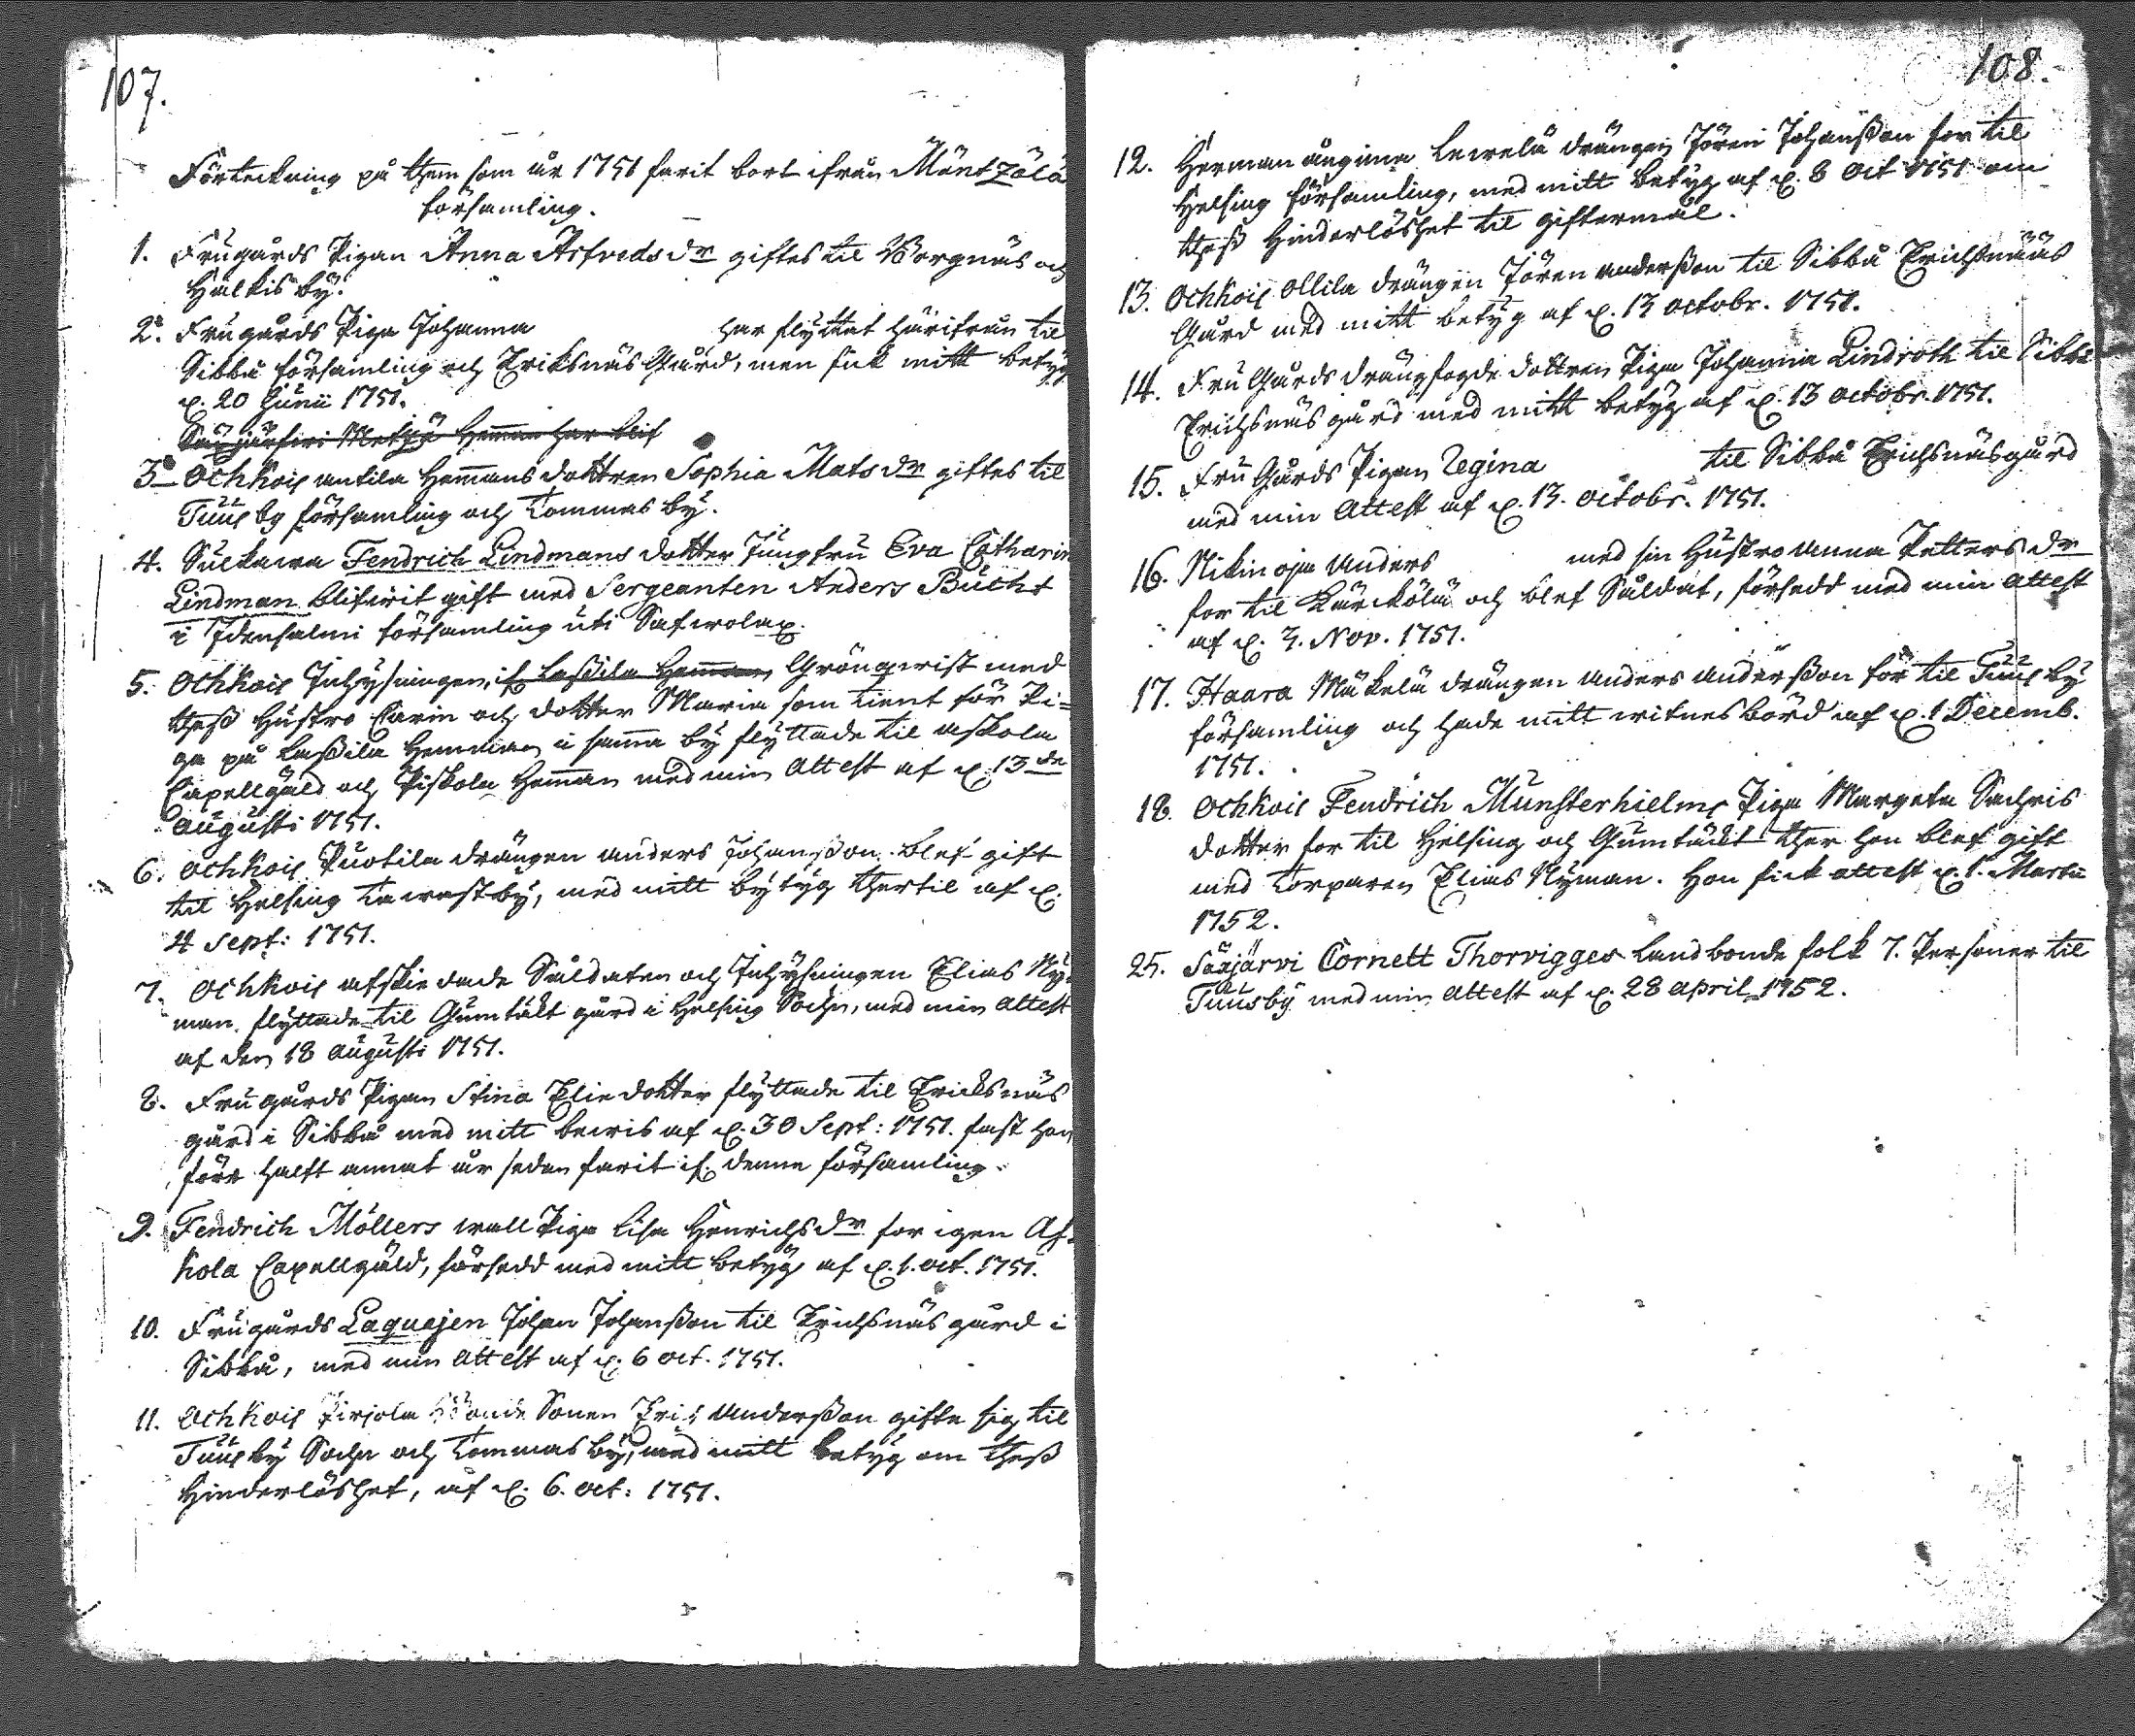 107.
Förteckning på them som år 1751 farit bort ifrån Mäntzälä
församling.
1. Frugårds Pigan Anna Asfreds dr giftes til Borgnäs och
Halkis by.
2. Frugårds Piga Johanna har flyttat härifrån til
Sibbå församling och Eriksnäs Gård, men fick mitt betyg
d. 20 Junii 1751.
Saxjärfwi Hemman har blif
3. Ochkois antila Hemmans dottren Sophia Mats dr giftes til
Tuusby församling och Tommas by.
4. Sulkawa Fendrich Lindmans dotter Jungfru Eva Catharin
Lindman blifwit gift med Sergeanten Anders Bücht
i Idensalmi församling uti Safwolax.
5. Ochkois Inhysningen, if. Laßila Hemman, Grönqwist med
theß Hustro Carin och dotter Maria som tient för Pi=
ga på Laßila Hemman i samma by flyttade til Askola
Capellgäld och Piskola Hemman med min Attest af d. 13de
Augusti 1751.
6. Ochkois Puotila drängen Anders Johanßon blef gift
til Helsing Tawastby, med mitt bytyg thertil af d.
4 Sept: 1751.
7. Ochkois afskiedade Såldaten och Inhysningen Elias Ny=
man flyttade til Gumtäkt gård i Helsing Sochn, med min Attest
af den 18 Augusti 1751.
8. Frugårds Pigan Stina Elie dotter flyttade til Ericksnäs
gård i Sibbå med mitt bewis af d. 30 Sept: 1751. fast hon
för halft annat år sedan farit if. denne församling.
9. Fendrich Möllers wall Piga Lisa Henrichs dr for igen As=
kola Capellgäld, försedd med mitt betyg af d. 1. oct. 1751.
10. Frugårds Laquejen Johan Johanßon til Erichsnäs gård i
Sibbå, med min Attest af d. 6 oct. 1751.
11. Ochkois Pirjola Bonde Sonen Eric Anderßon gifte sig til
Tuusby Sochn och Tommas by, med mitt betyg om theß
Hinderlöshet, af d. 6. oct: 1751.
108.
12. Herman Lewelä drängen Jören Johanßon for til
Helsing församling, med mitt betyg af d. 8 Oct 1751 om
theß Hinderlöshet til giftermål.
13. Ochkois Ollila drängen Jören Anderßon til Sibbå Erichsnääs
Gård med mitt betyg af d. 13 octobr. 1751.
14. Fru Gårds drängfogde dottren Piga Johanna Lindroth til Sibbå
Erichsnäs gård med mitt betyg af d. 13 octobr. 1751.
15. Fru Gårds Pigan Regina til Sibbå Erichsnäsgård
med min Attest af d. 13. octobr. 1751.
16. Nikinoja Anders med sin Hustro Anna Petters dr
for til Kärckölä och blef Såldat, försedt med min Attest
af d. 3. Nov. 1751.
17. Haara Mäkelä drängen Anders Anderßon för til Tuusby
församling och hade mitt witnesbörd af d. 1 Decemb.
1751.
18. Ochkois Fendrich Munsterhielms Piga Margeta Sachris
dotter for til Helsing och Gumtäckt ther hon blef gift
med Torparen Elias Nyman. Hon fick attest d. 1. Martii
1752.
25. Säxjärvi Cornett Thorvigges Landbonde folk 7. Personer til
Tuusby med min Attest af d. 28 April 1752.